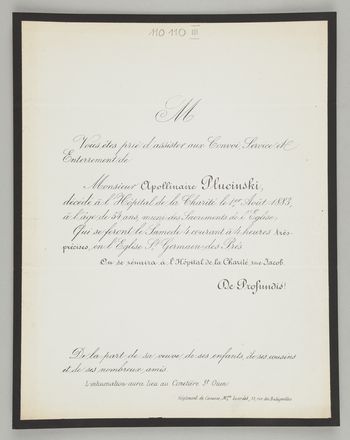 110 110 III
M
Vous êtes prié d'assister aux Convoi, Service et
Enterrement de
Monsieur Apollinaire Plucinski,
décédé à l'Hôpital de la Charité le 1er Août 1883,
à l'âge de 54 ans, muni des Sacrements de l'Eglise;
Qui se feront le Samedi 4 courant à 4 heures très-
précises, en l'Eglise St Germain-des-Prés.
On se réunira à l'Hôpital de la Charité rue Jacob.
De Profundis!
De la part de sa veuve, de ses enfants, de ses cousins
et de ses nombreux amis.
L'inhumation aura lieu au Cimetière St Ouen
Règlement de Convois, Mon 11, rue des Batignolles